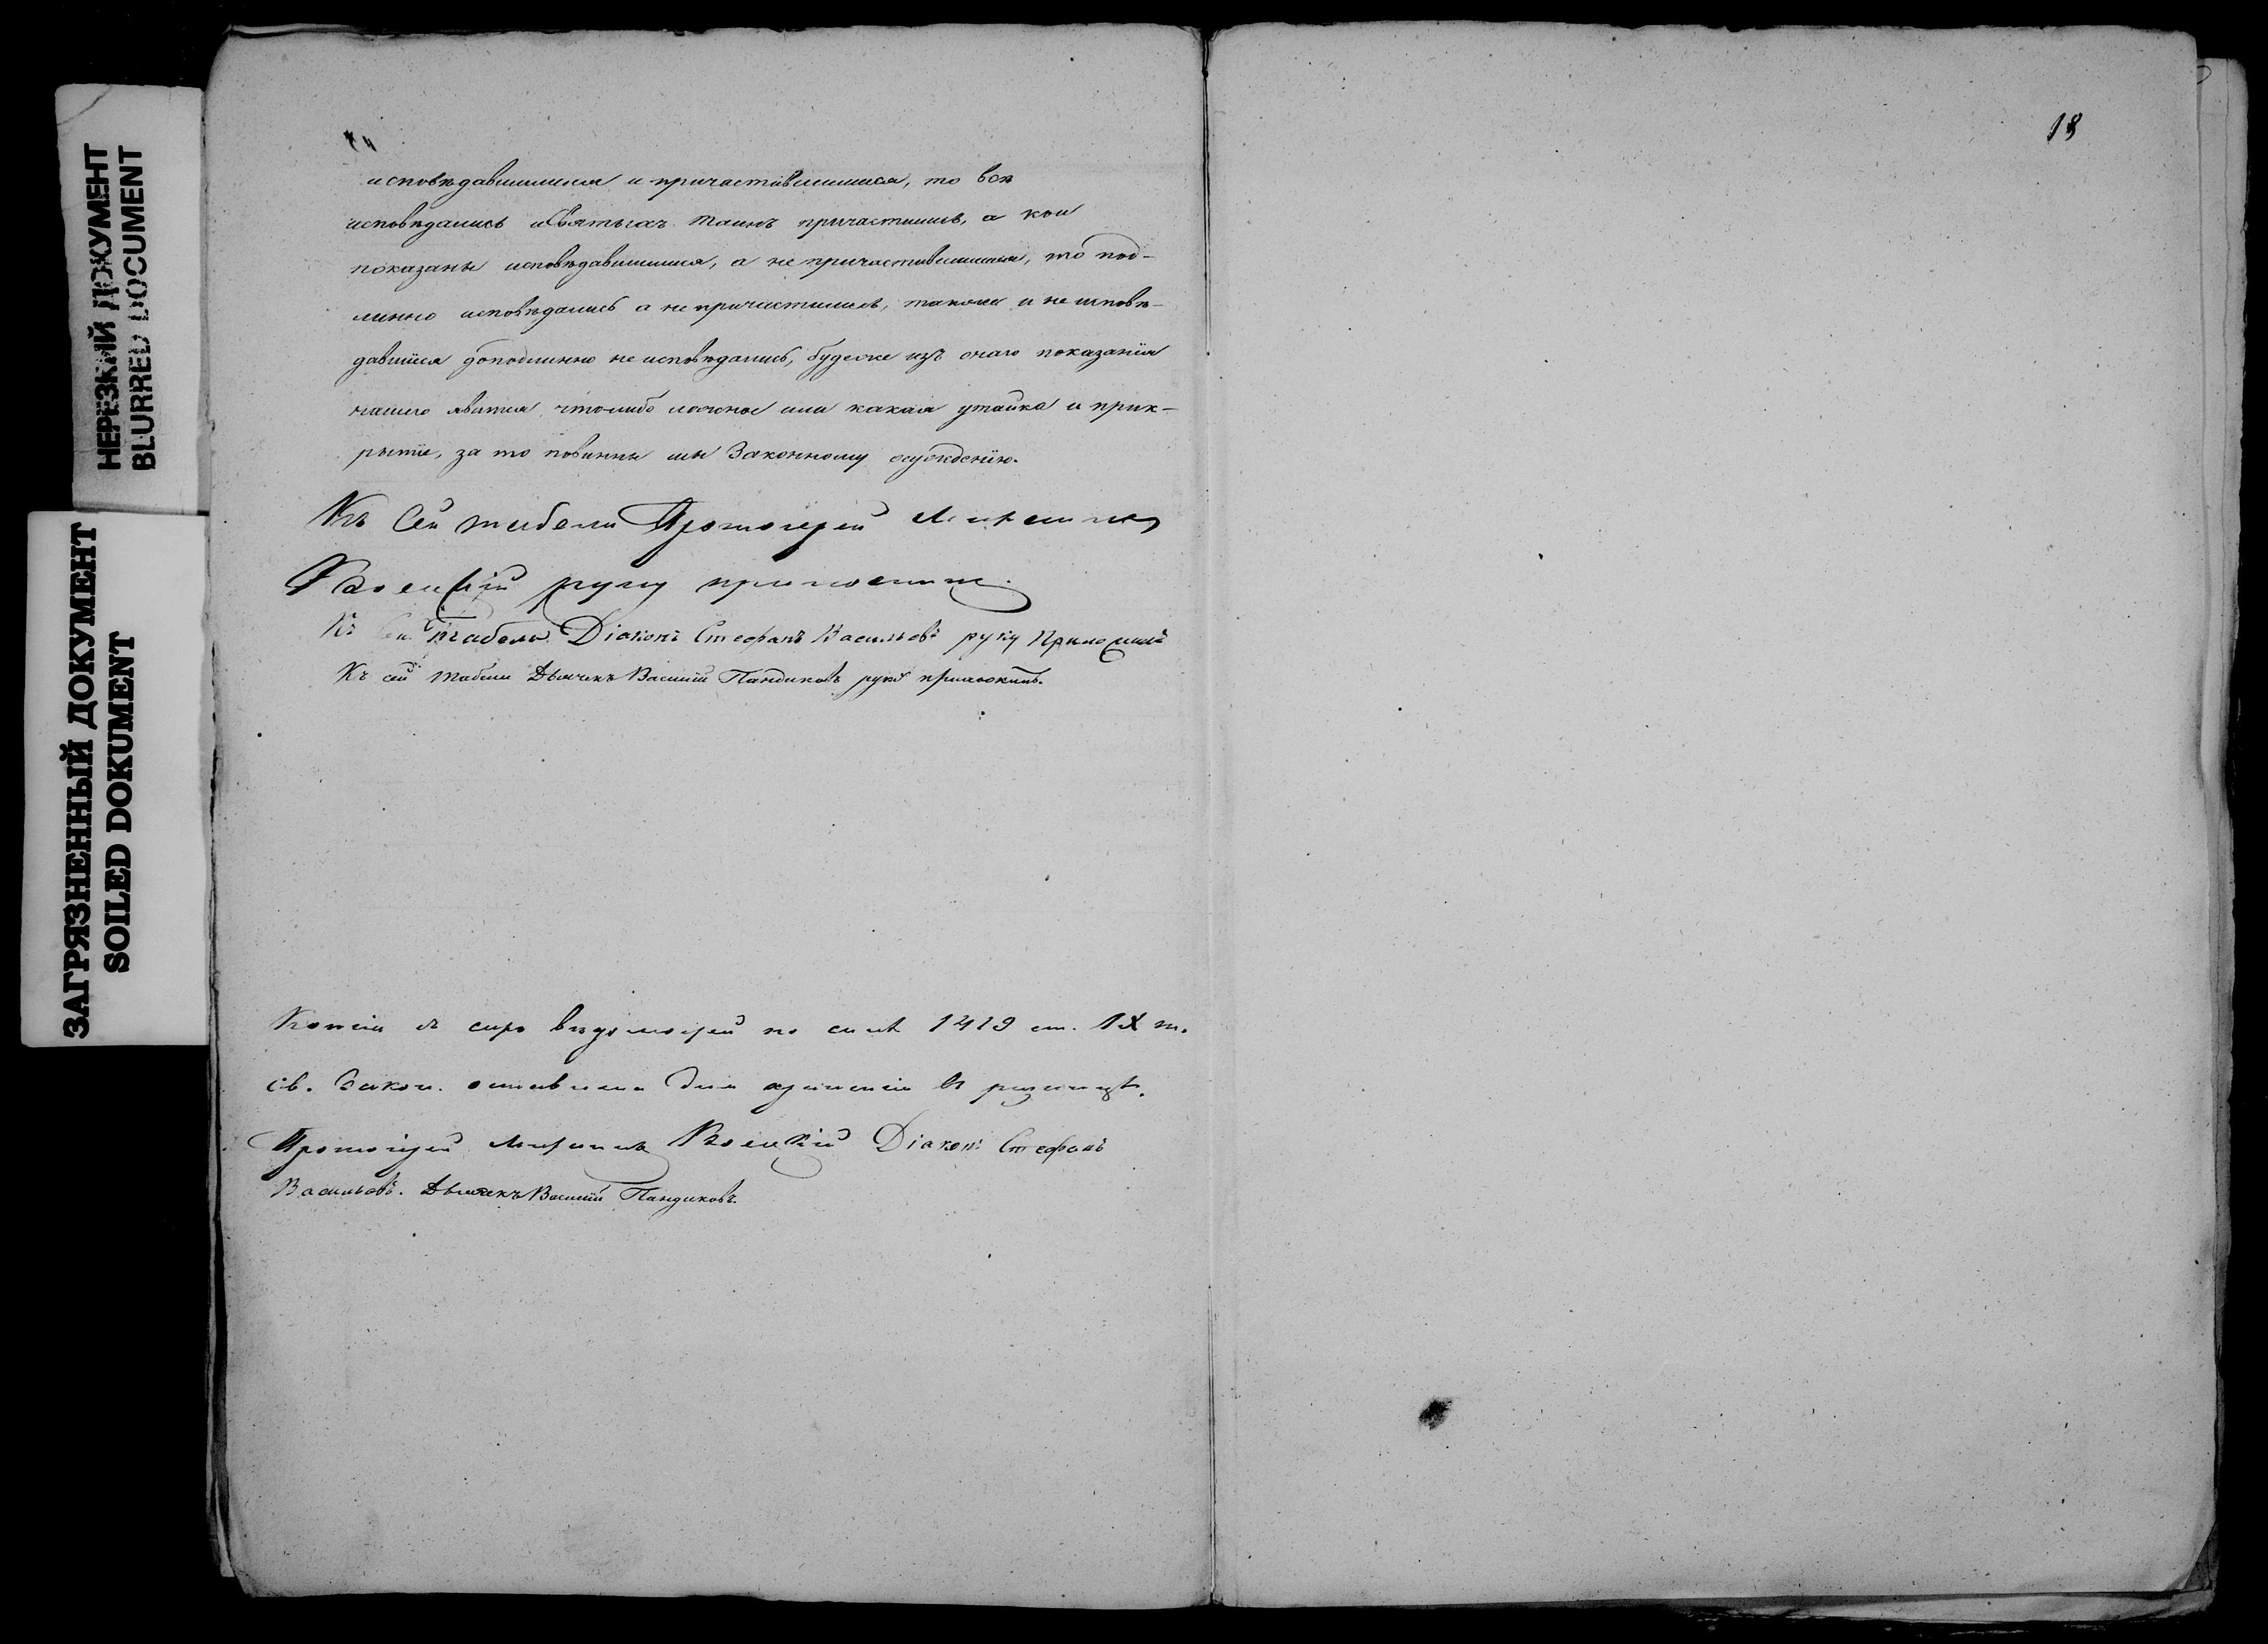 НЕРЕЗКИЙ ДОКУМЕНТ
BLURRED DOCUMENT
ЗАГРЯЗНЕННЫЙ ДОКУМЕНТ
SOILED DOKUMENT
18
исповѣдавшимися и причастившимися, то всѣ
исповѣдались и Святыхъ таинъ причастились, а кои
показаны исповѣдавшимися, а не причастившимися, то под-
линно исповѣдались а не причастились, такоже и не исповѣ-
давшіеся доподлинно не исповѣдались, будеже изъ онаго показанія
нашего явится чтолибо ложное или какая утайка и прик-
рытіе, за то повинны мы Законному осужденію.
Къ Сей табели Протоіерей
руку приложилъ.
Къ Сей табели Діаконъ Стефанъ Васильевъ руку Приложилъ
Къ сей табели Дьячекъ Василій Пандиковъ руку приложилъ.
Копія съ сихъ вѣдомостей по силѣ 1419 ст. IX т.
св. Закон. оставлена для храненія въ ризницѣ.
Протоіерей Діаконъ Стефанъ
Васильевъ. Дьячекъ Василій Пандиковъ.